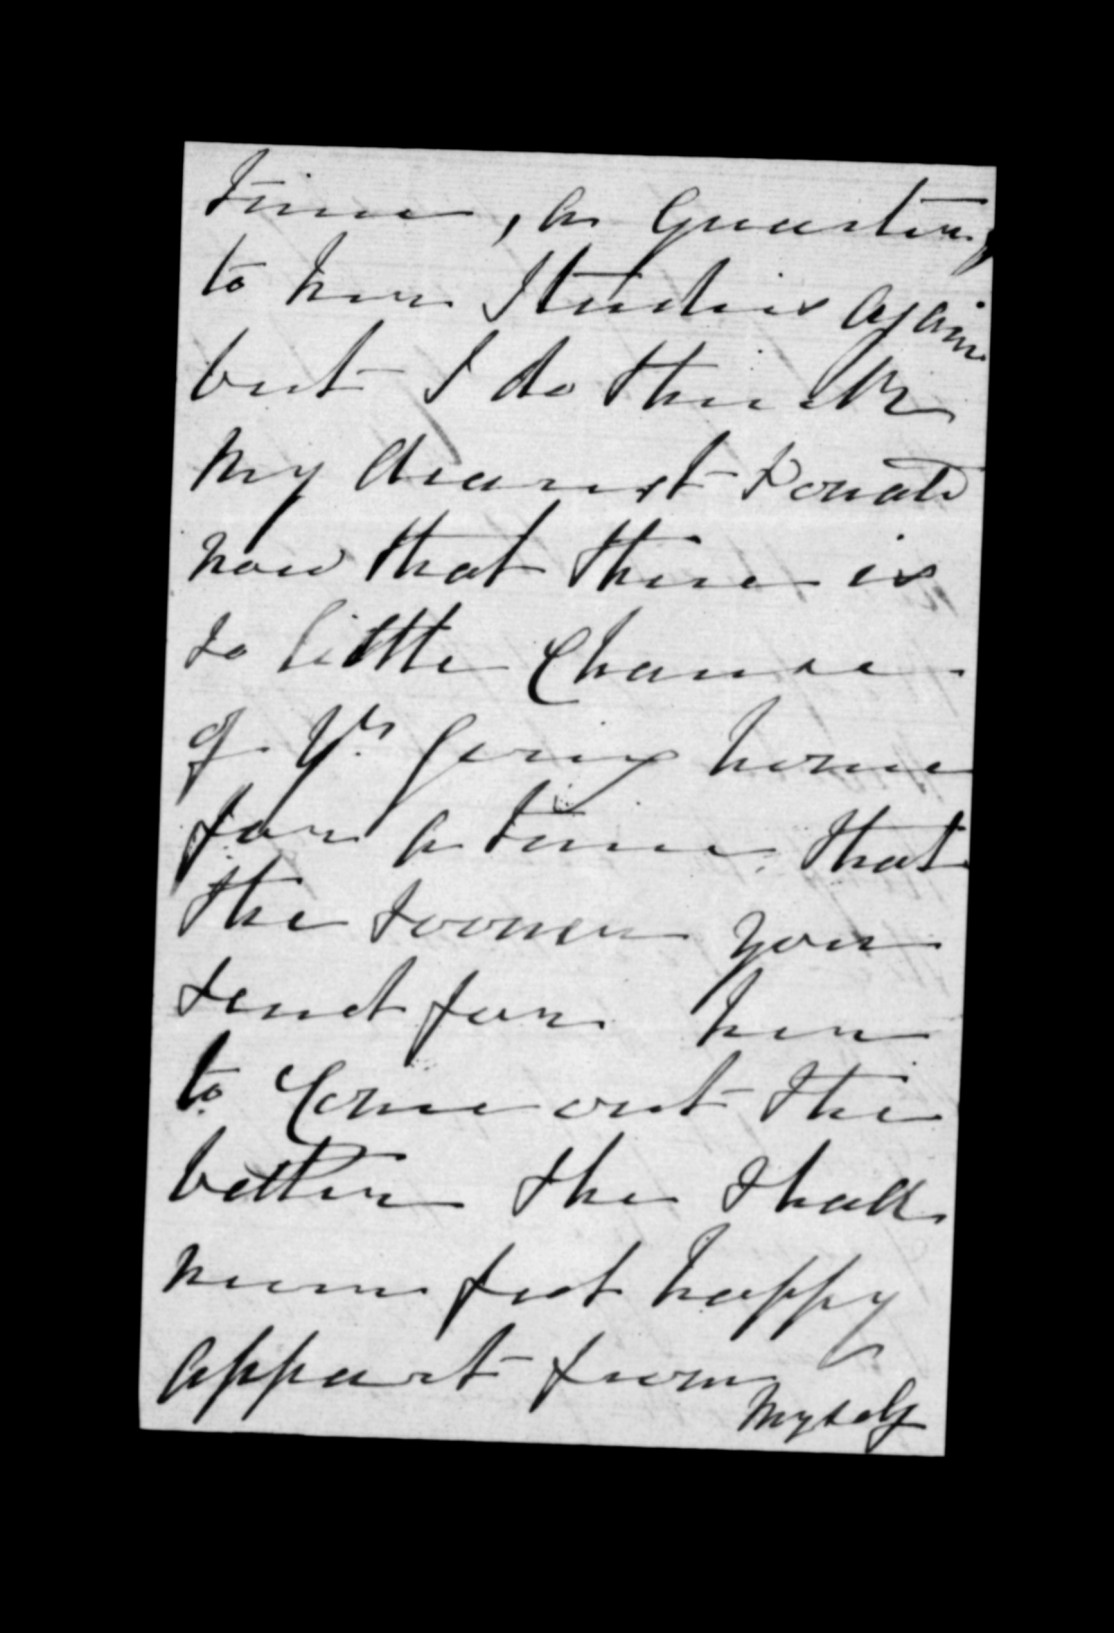 time, a
to her Studies again
but I do think
my dearest Donald
now that there is
so little Chance
of Yr. going home
for a time. that
the sooner you
send for her
to Come out the
better She Shall
never feel happy
appart from
Myself